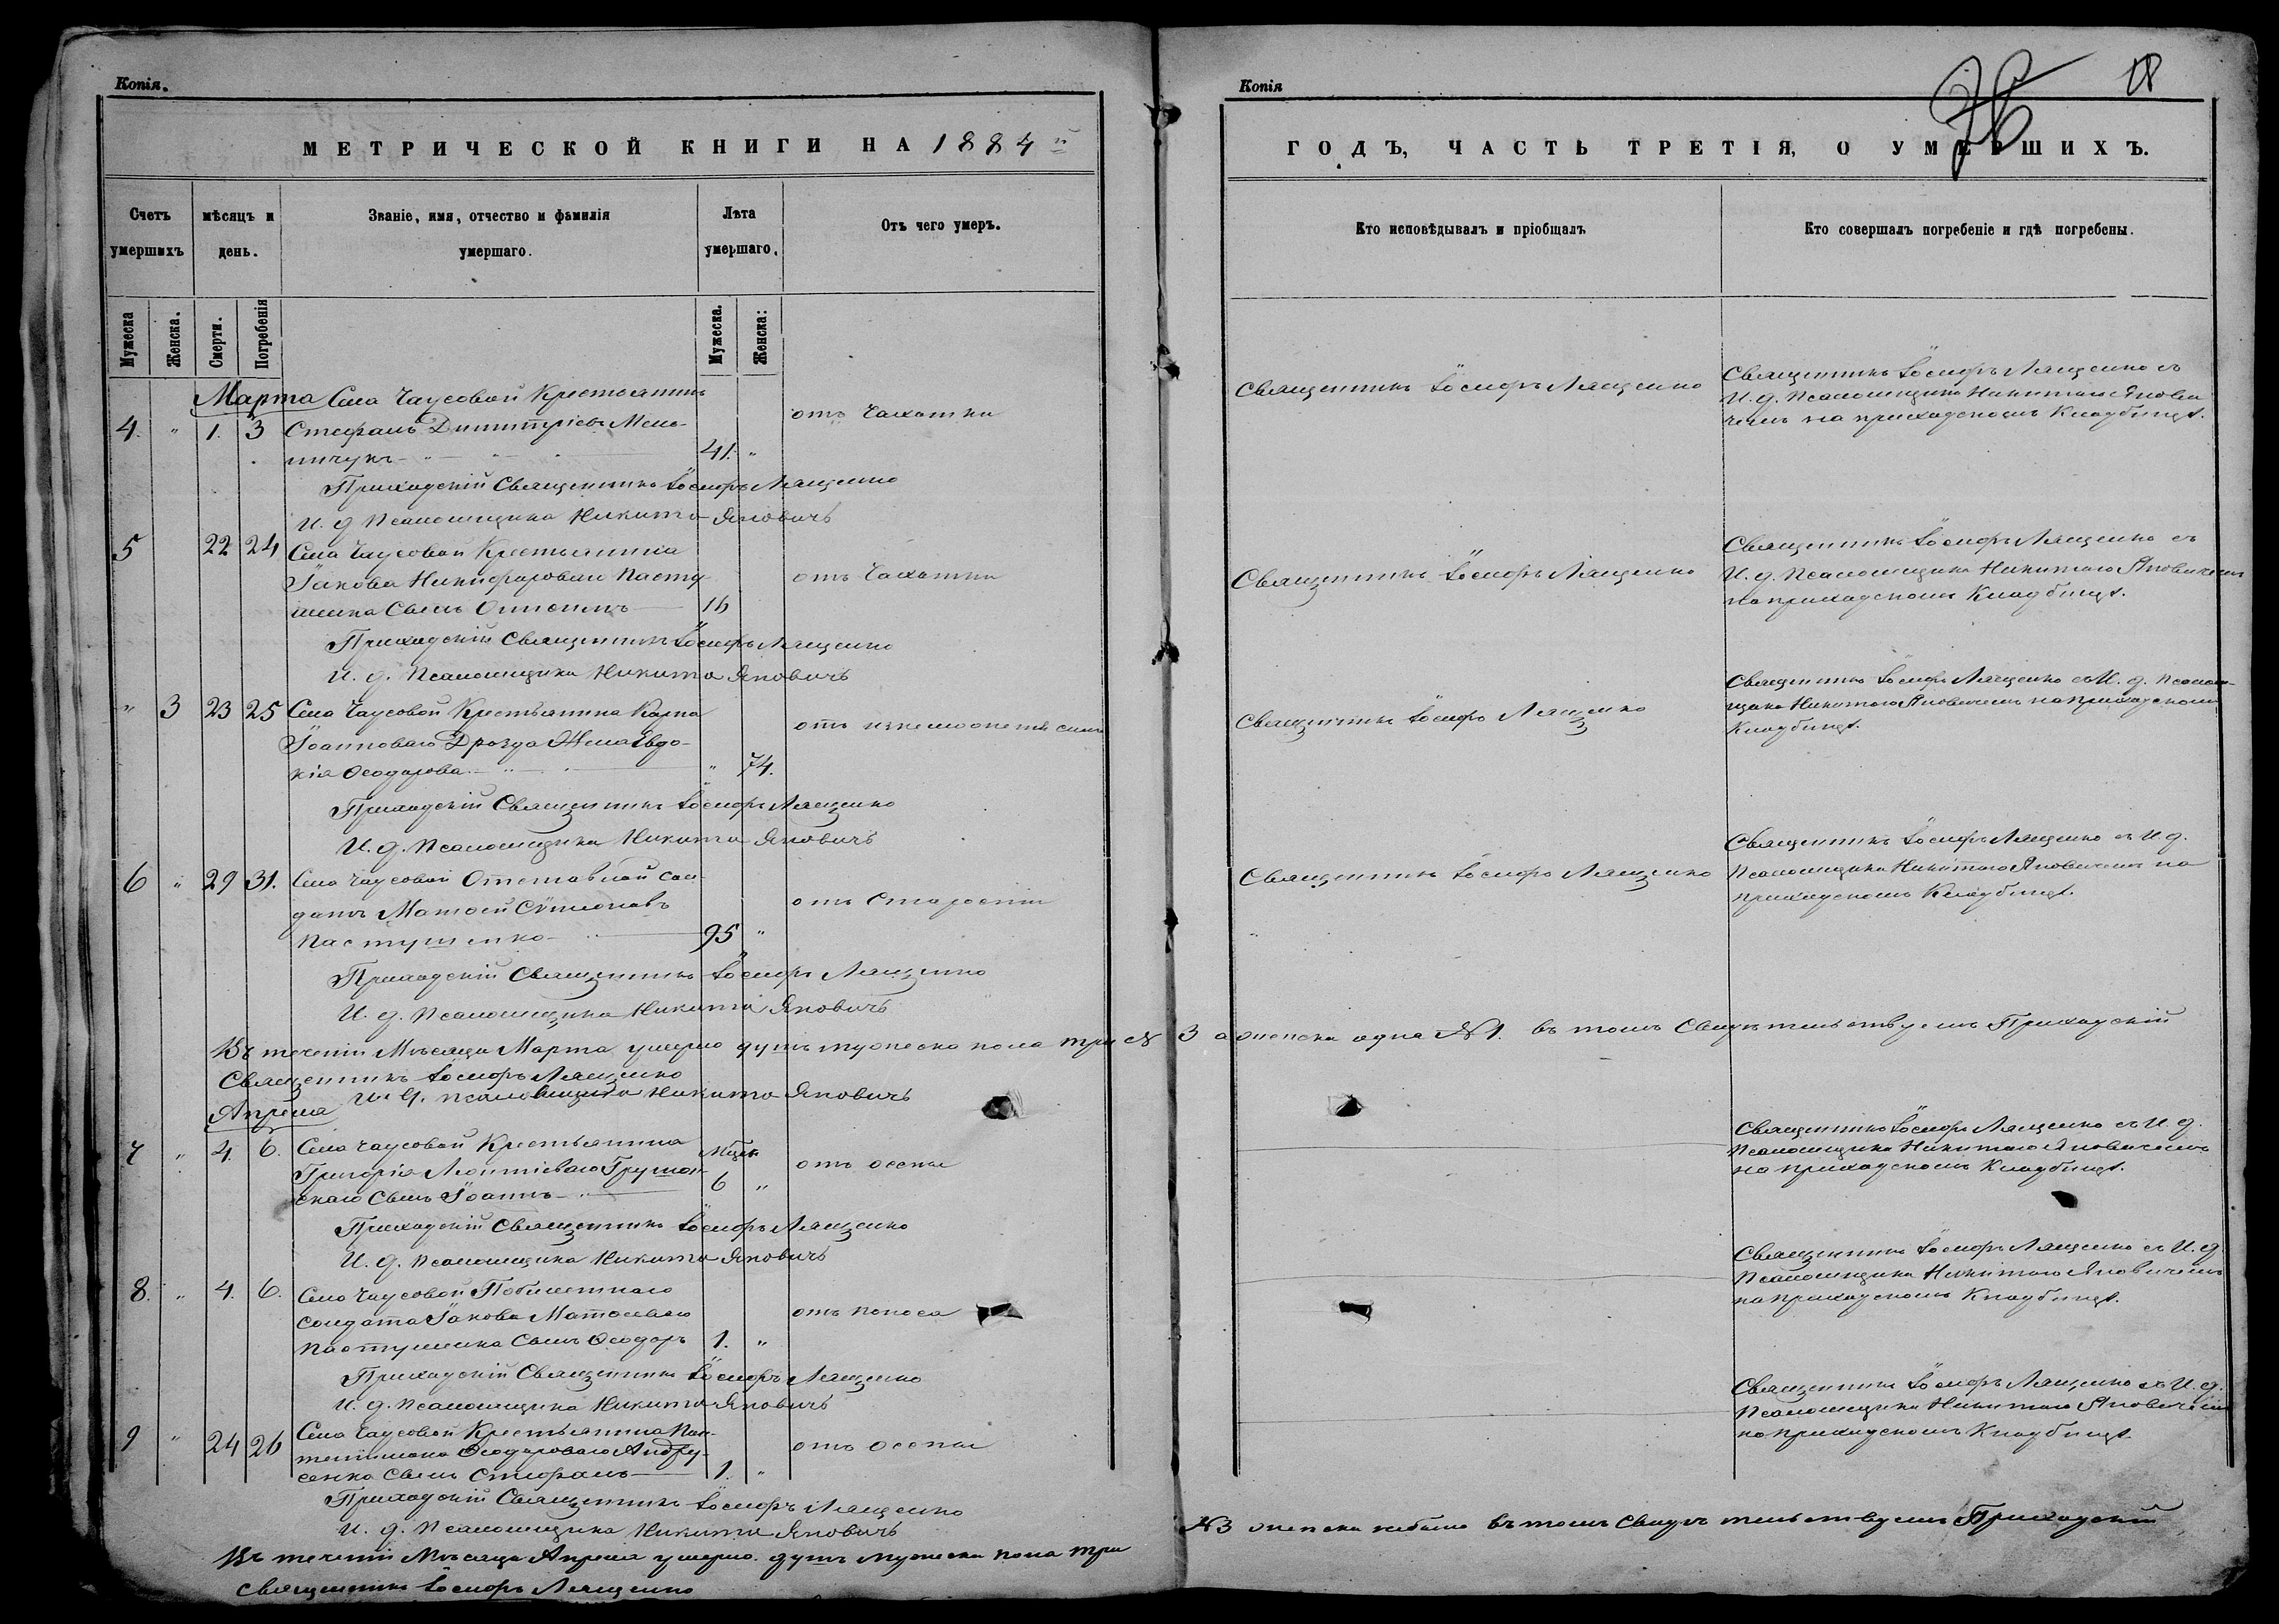 Копія.
МЕТРИЧЕСКОЙ КНИГИ НА 1884й
Счетъ умершихъ
мѣсяцъ и день.
Званіе, имя, отчество и фамилія умершаго.
Лѣта умершаго.
Отъ чего умеръ.
Мужеска
Женска.
Смерти.
Погребенія
Мужеска.
Женска:
Марта Села Чаусовой Крестьянинъ
4. " 1. 3 Стефанъ Димитріевъ Мель-
ничукъ 41. "
отъ Чахотки
Приходскій Священникъ Іосифъ Лященко
И. д. Псаломщика Никита Яновичъ
5 22 24 Села Чаусовой Крестьянина
Іакова Никифорова Пасту-
шенка Сынъ 16
отъ Чахотки
Приходскій Священникъ Іосифъ Лященко
И. д. Псаломщика Никита Яновичъ
" 3 23 25 Села Чаусовой Крестьянина Карпа
Іоаннова Дрозда Жена Евдо-
кія Ѳеодорова " 74.
отъ
Приходскій Священникъ Іосифъ Лященко
И. д. Псаломщика Никита Яновичъ
6 " 29 31. Села Чаусовой Отставной Сол-
датъ Матѳей Сѵмеоновъ
Пастушенко 95 "
отъ Старости
Приходскій Священникъ Іосифъ Лященко
И. д. Псаломщика Никита Яновичъ
Въ теченіи Мѣсяца Марта умерло душъ мужеска пола три №
Священникъ Іосифъ Лященко
И. д. псаломщика Никита Яновичъ
Апрѣля
7 " 4. 6. Села Чаусовой Крестьянина
Григорія Леонтіеваго Грушов-
скаго Сынъ Іоаннъ мѣсяц. 6 "
отъ оспы
Приходскій Священникъ Іосифъ Лященко
И. д. Псаломщика Никита Яновичъ
8. " 4. 6. Села Чаусовой
солдата Іакова Матѳеева
Пастушенка Сынъ Ѳеодоръ 1. "
отъ поноса
Приходскій Священникъ Іосифъ Лященко
И. д. Псаломщика Никита Яновичъ
9 " 24 26 Села Чаусовой Крестьянина Пан-
телимона Ѳеодороваго Андру-
сенка Сынъ Стефанъ 1. "
отъ оспы
Приходскій Священникъ Іосифъ Лященко
И. д. Псаломщика Никита Яновичъ
Въ теченіи Мѣсяца Апрѣля умерло душъ мужеска пола три
Священникъ Іосифъ Лященко
Копія
18
ГОДЪ, ЧАСТЬ ТРЕТІЯ, О УМЕРШИХЪ.
Кто исповѣдывалъ и пріобщалъ
Кто совершалъ погребеніе и гдѣ погребены.
Священникъ Іосифъ Лященко
Священникъ Іосифъ Лященко съ
И. д. Псаломщика Никитою Янови-
чемъ на приходскомъ Кладбищѣ.
Священникъ Іосифъ Лященко
Священникъ Іосифъ Лященко съ
И. д. Псаломщика Никитою Яновичемъ
на приходскомъ Кладбищѣ.
Священникъ Іосифъ Лященко
Священникъ Іосифъ Лященко съ И. д. Псалом-
щика Никитою Яновичемъ на приходскомъ
Кладбищѣ.
Священникъ Іосифъ Лященко
Священникъ Іосифъ Лященко съ И. д.
Псаломщика Никитою Яновичемъ на
приходскомъ Кладбищѣ.
3 а женска одна №1. въ томъ Свидѣтельствуемъ Приходскій
Священникъ Іосифъ Лященко съ И. д.
Псаломщика Никитою Яновичемъ
на приходскомъ Кладбищѣ.
Священникъ Іосифъ Лященко съ И. д.
Псаломщика Никитою Яновичемъ
на приходскомъ Кладбищѣ.
Священникъ Іосифъ Лященко съ И. д.
Псаломщика Никитою Яновичемъ
на приходскомъ Кладбищѣ.
№3 женска небыло въ томъ Свидѣтельствуемъ Приходскій